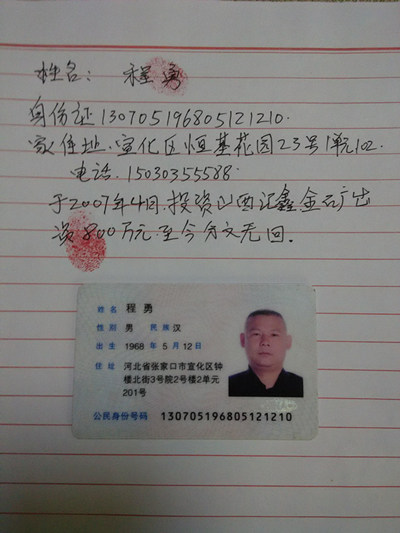 姓名: 程勇
身份证130705196805121210.
家住址.宣化区恒基花园23号1单元102.
电话.15030355588
于2007年4月.投资山西汇鑫金矿出
资800万元.至今分文无回.
姓名 程勇
性别 男 民族 汉
出生 1968 年 5 月 12 日
住址 河北省张家口市宣化区钟
楼北街3号院2号楼2单元
201号
公民身份号码 130705196805121210